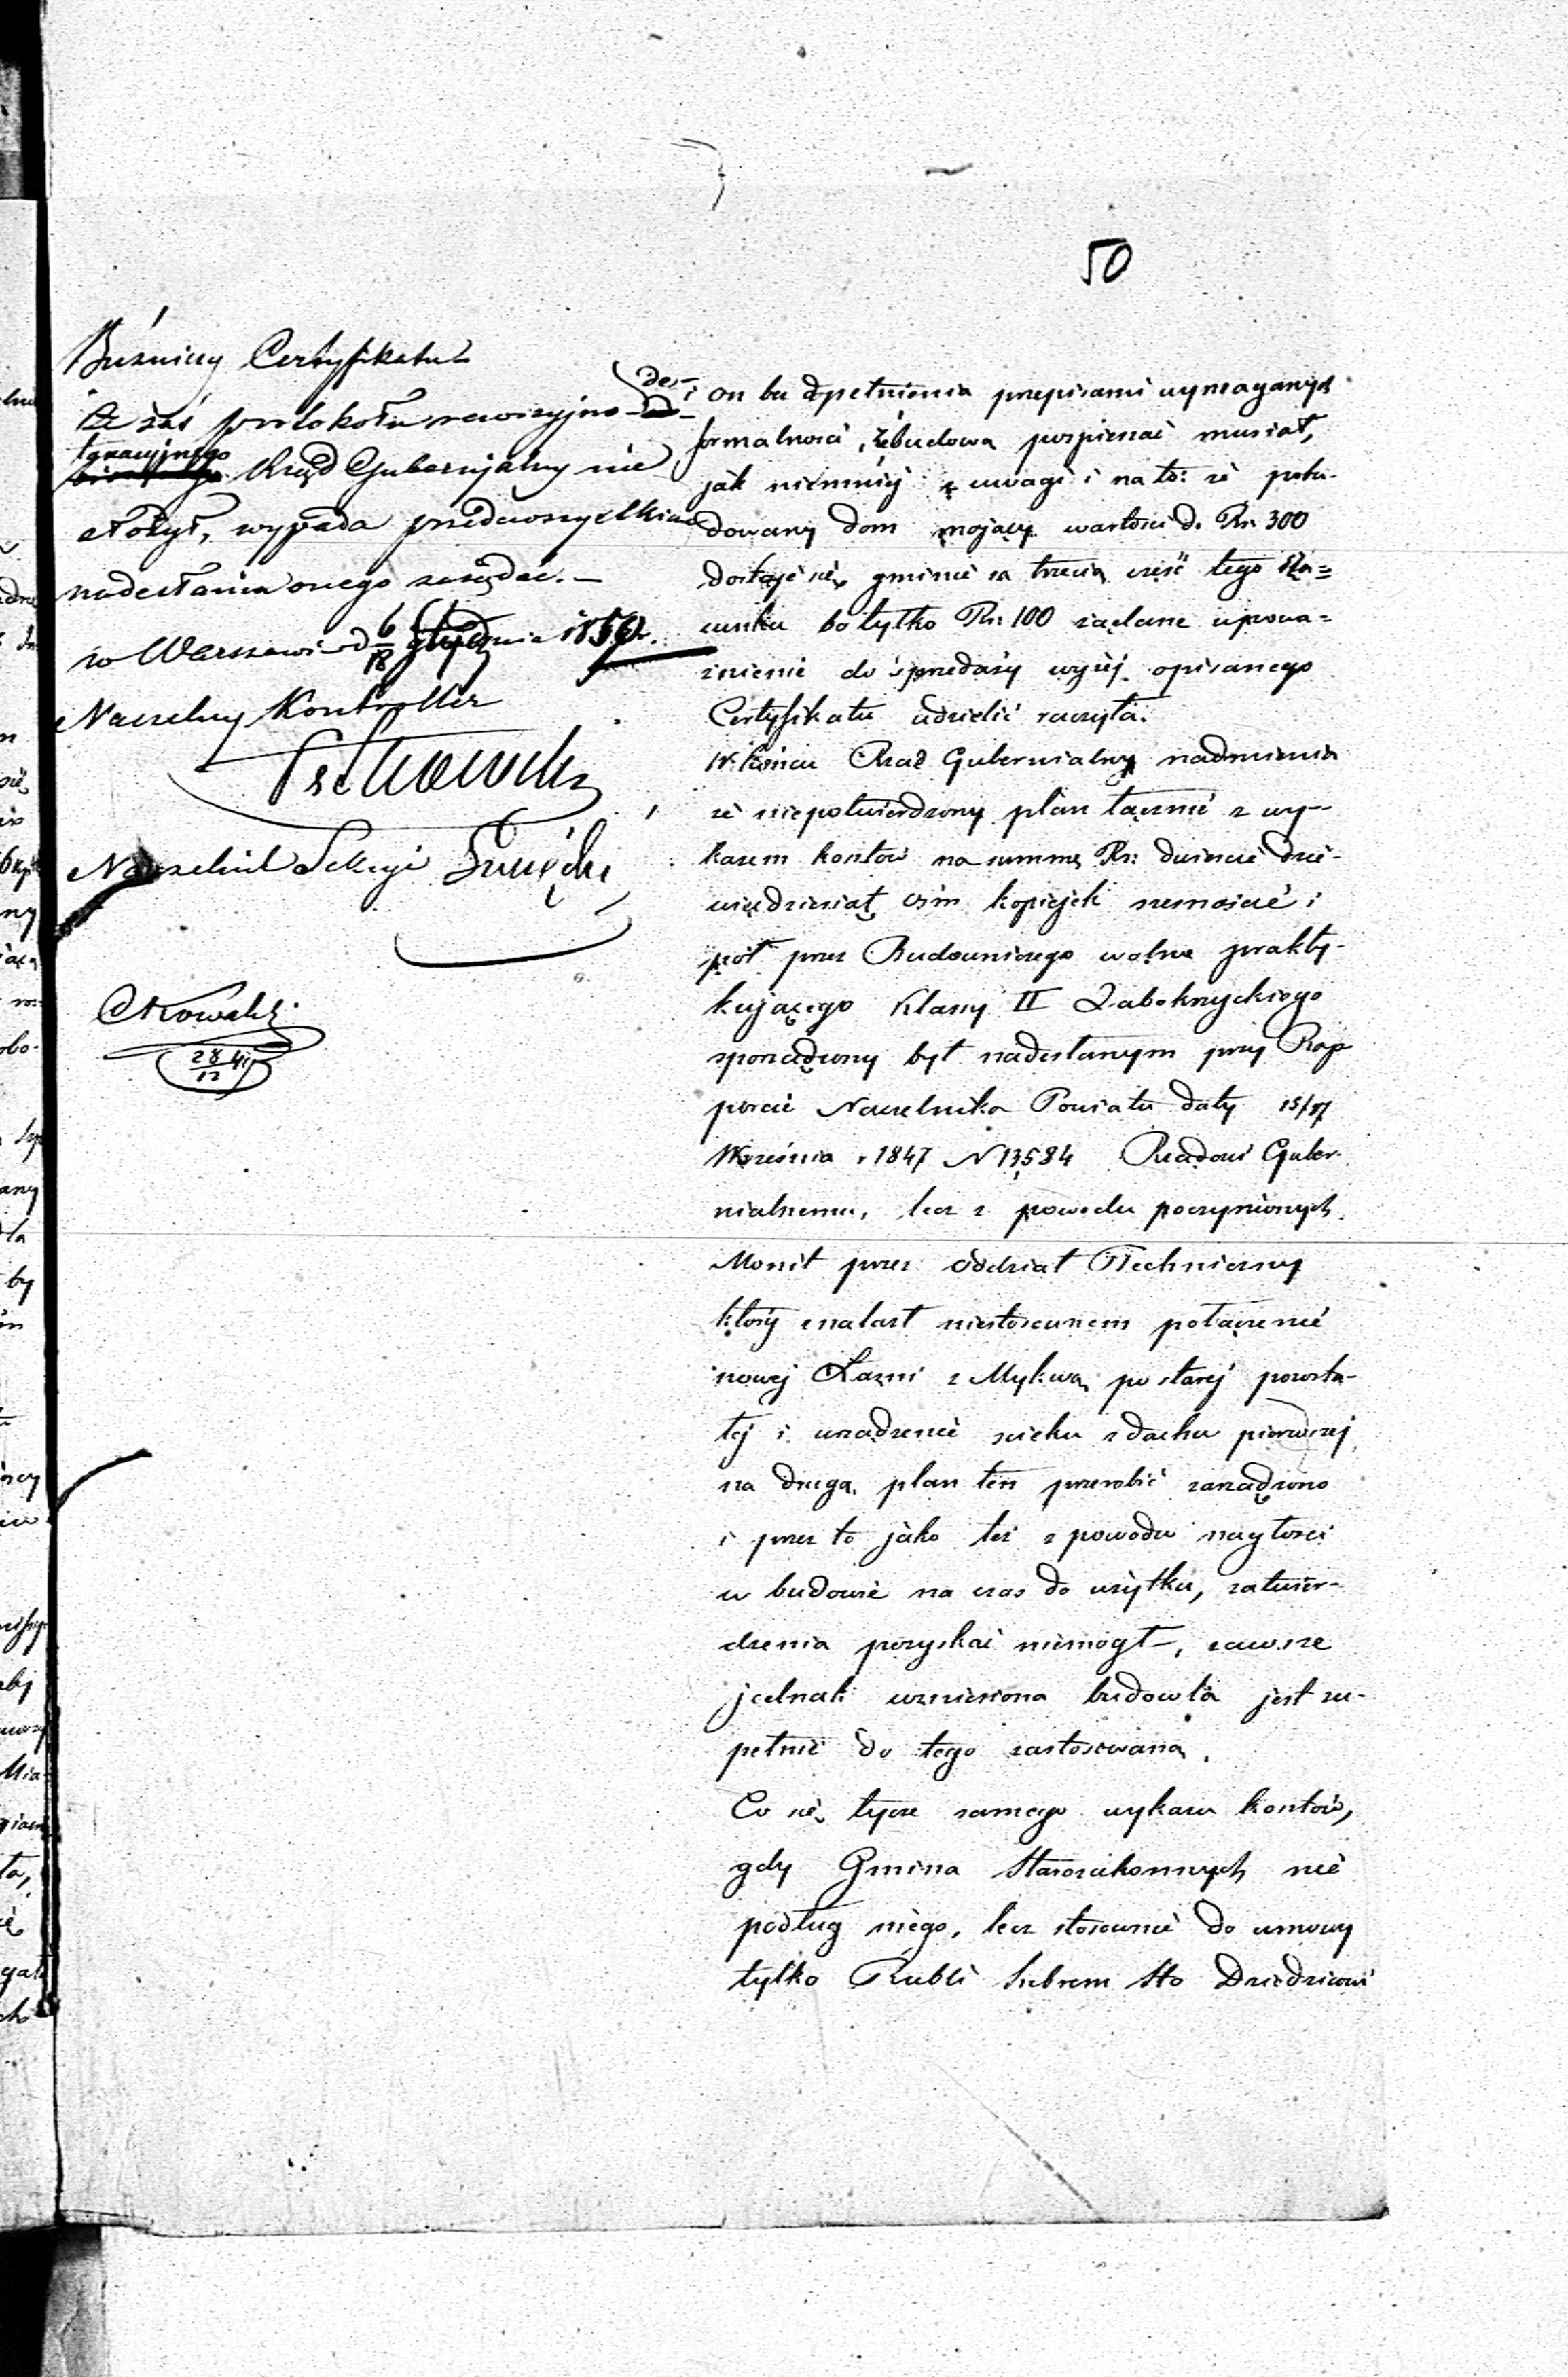 50
Buźnicy Certyfikatu
Że zaś protokołu rewizyjno-de-
taxacyjnego Rząd Gubernijalny nie
złożył, wypada przedewszystkiem
nadesłania onego zażądać. –
w Warszawie d 6/18 1850 r.
Naczelny Kontroller
Naczelnik Sekcyi
28/12
i on bez dopełnienia przepisami wymaganych
formalności, z budową pospieszać musiał,
jak niemniej z uwagi i na to: że pobu-
dowany dom mający wartości do Rs: 300
dostaje się gminie za trzecią część tego sza=
cunku bo tylko Rs: 100 żądane upowa=
żnienie do sprzedaży wyżej opisanego
Certyfikatu udzielić raczyła.
W końcu Rząd Gubernialny nadmienia
że niepotwierdzony plan łącznie z wy-
kazem kosztów na summę Rs: dwieście dzie-
więdziesiąt ośm kopiejek szesnaście i
pół przez Budowniczego wolno prakty-
kującego Klassy II Zabokrzyckiego
sporządzony był nadesłanym przy Rap
porcie Naczelnika Powiatu daty 15/27
Września r 1847 N 13,584 Rządowi Guber-
nialnemu, lecz z powodu poczynionych
Monit przez Oddział Techniczny
który znalazł niestosownem połączenie
nowej Łazni z Mykwą po starej pozosta-
łej i urządzenie ścieku z dachu pierwszej
na drugą, plan ten przerobić zarządzono
i przez to jako też z powodu nagłości
w budowie na czas do użytku, zatwier-
dzenia pozyskać niemógł –, zawsze
jednak wzniesiona budowla jest zu-
pełnie do tego zastosowaną.
Co się tycze samego wykazu kosztów,
gdy Gmina Starozakonnych nie
podług niego, lecz stosownie do umowy
tylko Rubli Srebrem sto Dziedzicowi